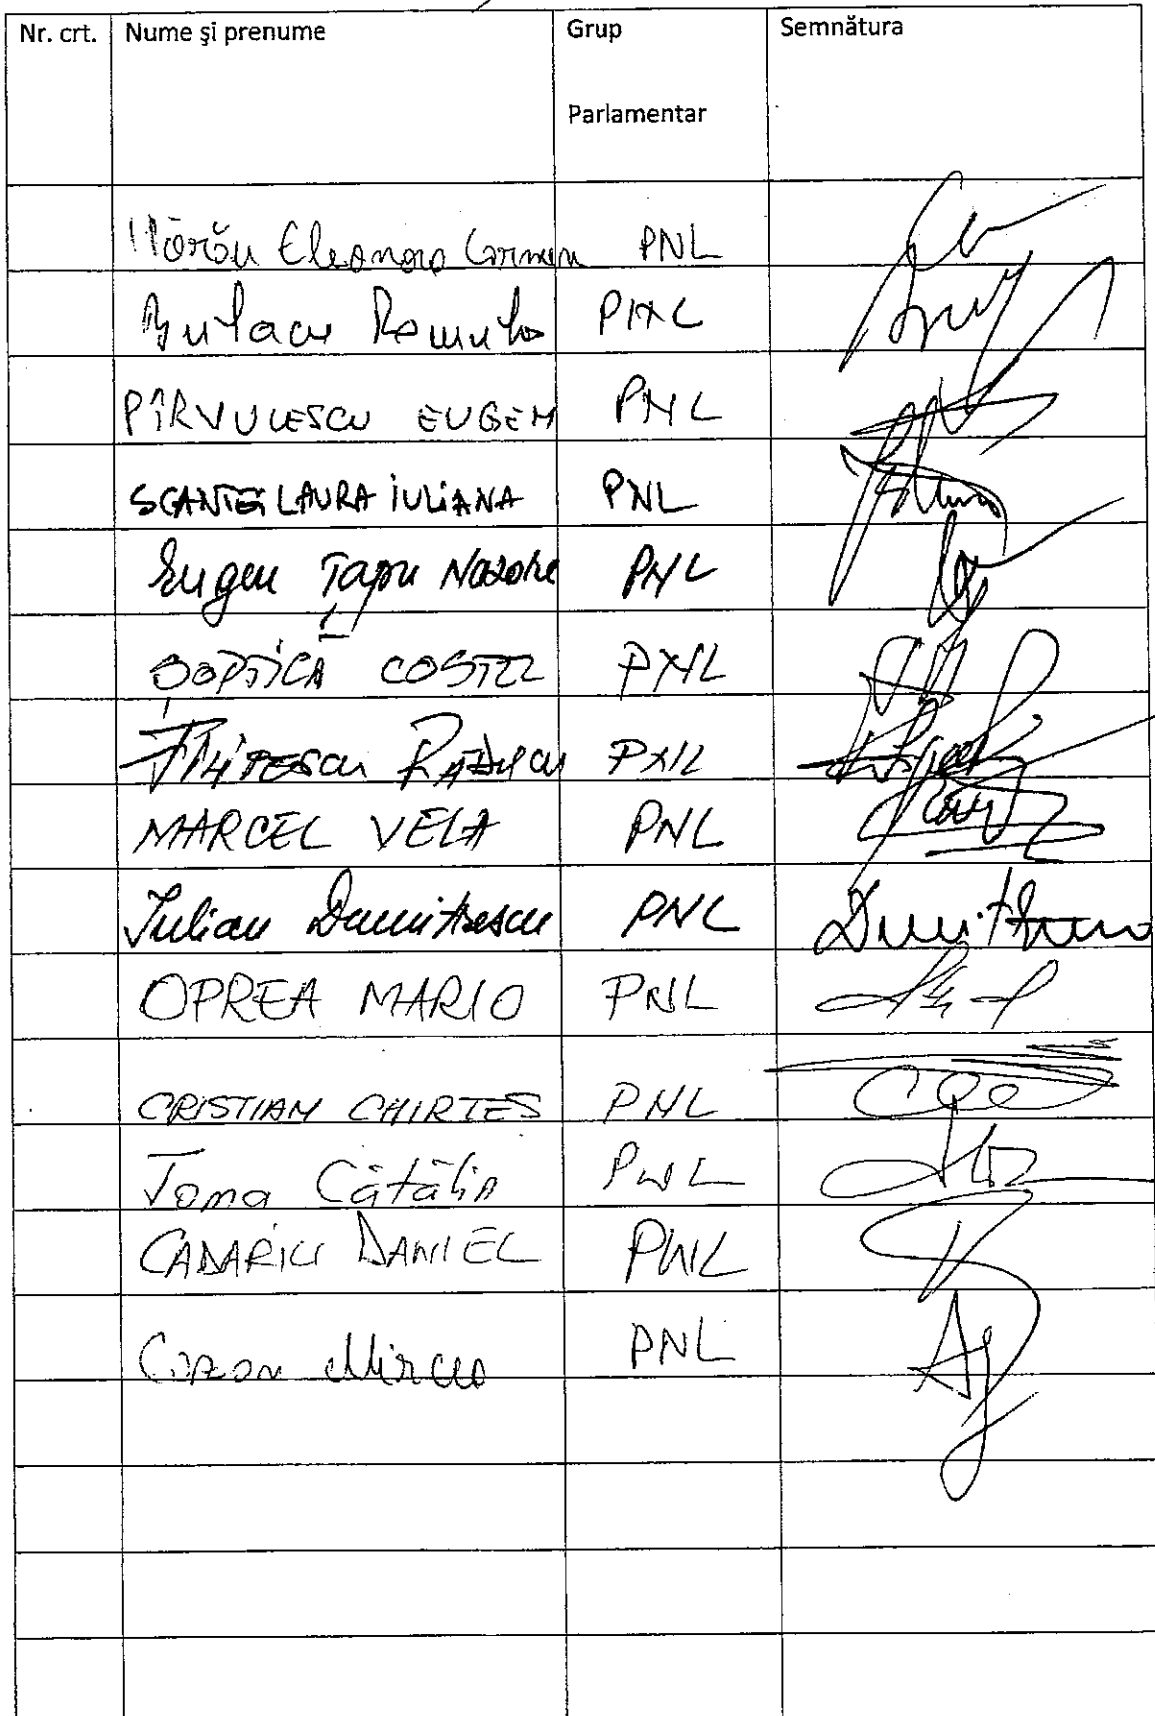 Nr. crt. Nume și prenume Grup Parlamentar Semnătura
Hărău Eleonora Carmen PNL
Bulacu Romulus PNL
PÎRVULESCU EUGEN PNL
SCÂNTEI LAURA IULIANA PNL
Eugen Țapu Nazare PNL
ȘOPTICĂ COSTEL PNL
PNL
MARCEL VELA PNL
Iulian Dumitrescu PNL Dumitrescu
OPREA MARIO PNL
CRISTIAN CHIRTEȘ PNL
Toma Cătălin PNL
CADARIU DANIEL PNL
Cazan Mircea PNL